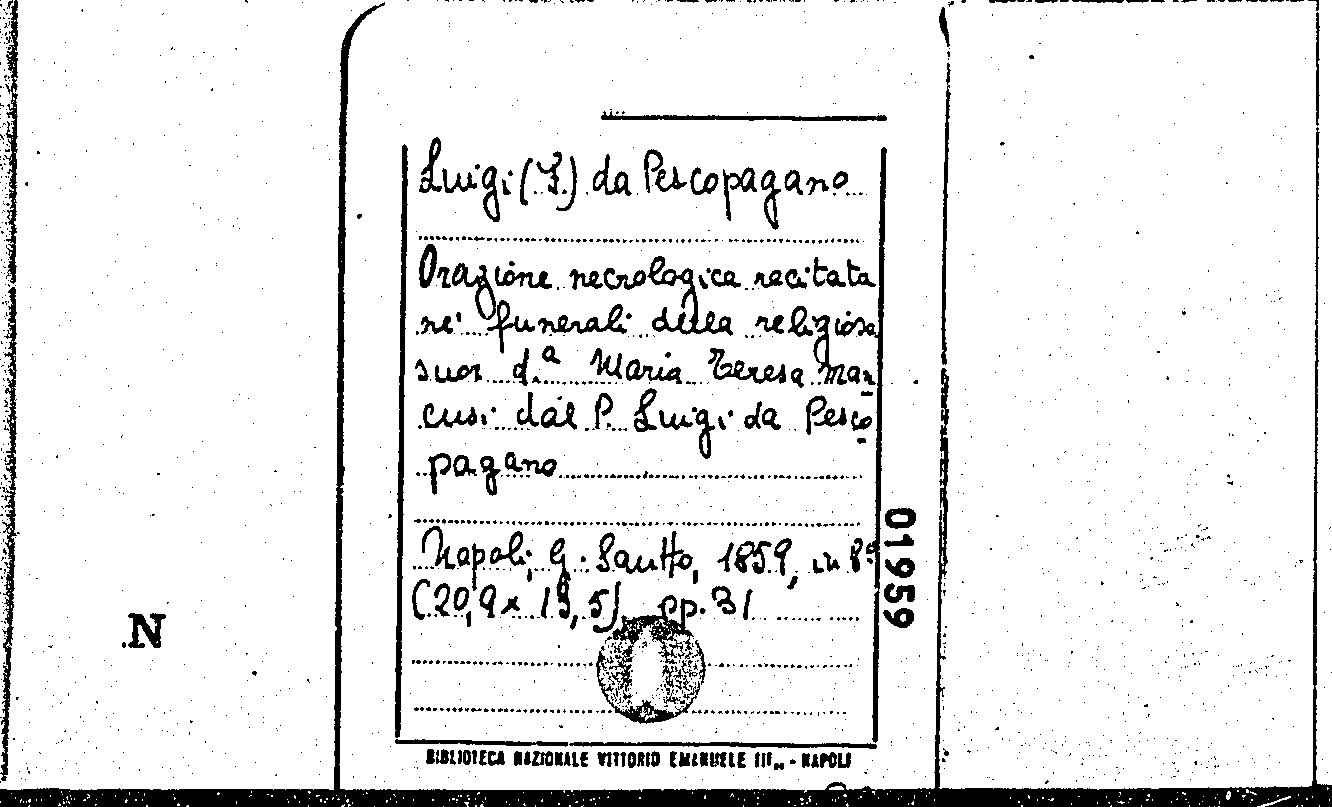 Luigi (F.) da Pescopagano
Orazione necrologica recitata
ne' funerali della religiosa
suor d.ª Maria Teresa Mar
cusi dal P. Luigi da Pesco
pagano
Napoli, G. Sautto, 1859, in 8.º
(20,9 x 13,5) pp. 31
01959
N
BIBLIOTECA NAZIONALE VITTORIO EMANUELE III,, - NAPOLI